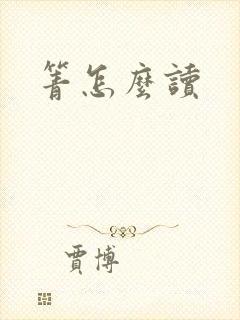 箐怎麼讀
賈博